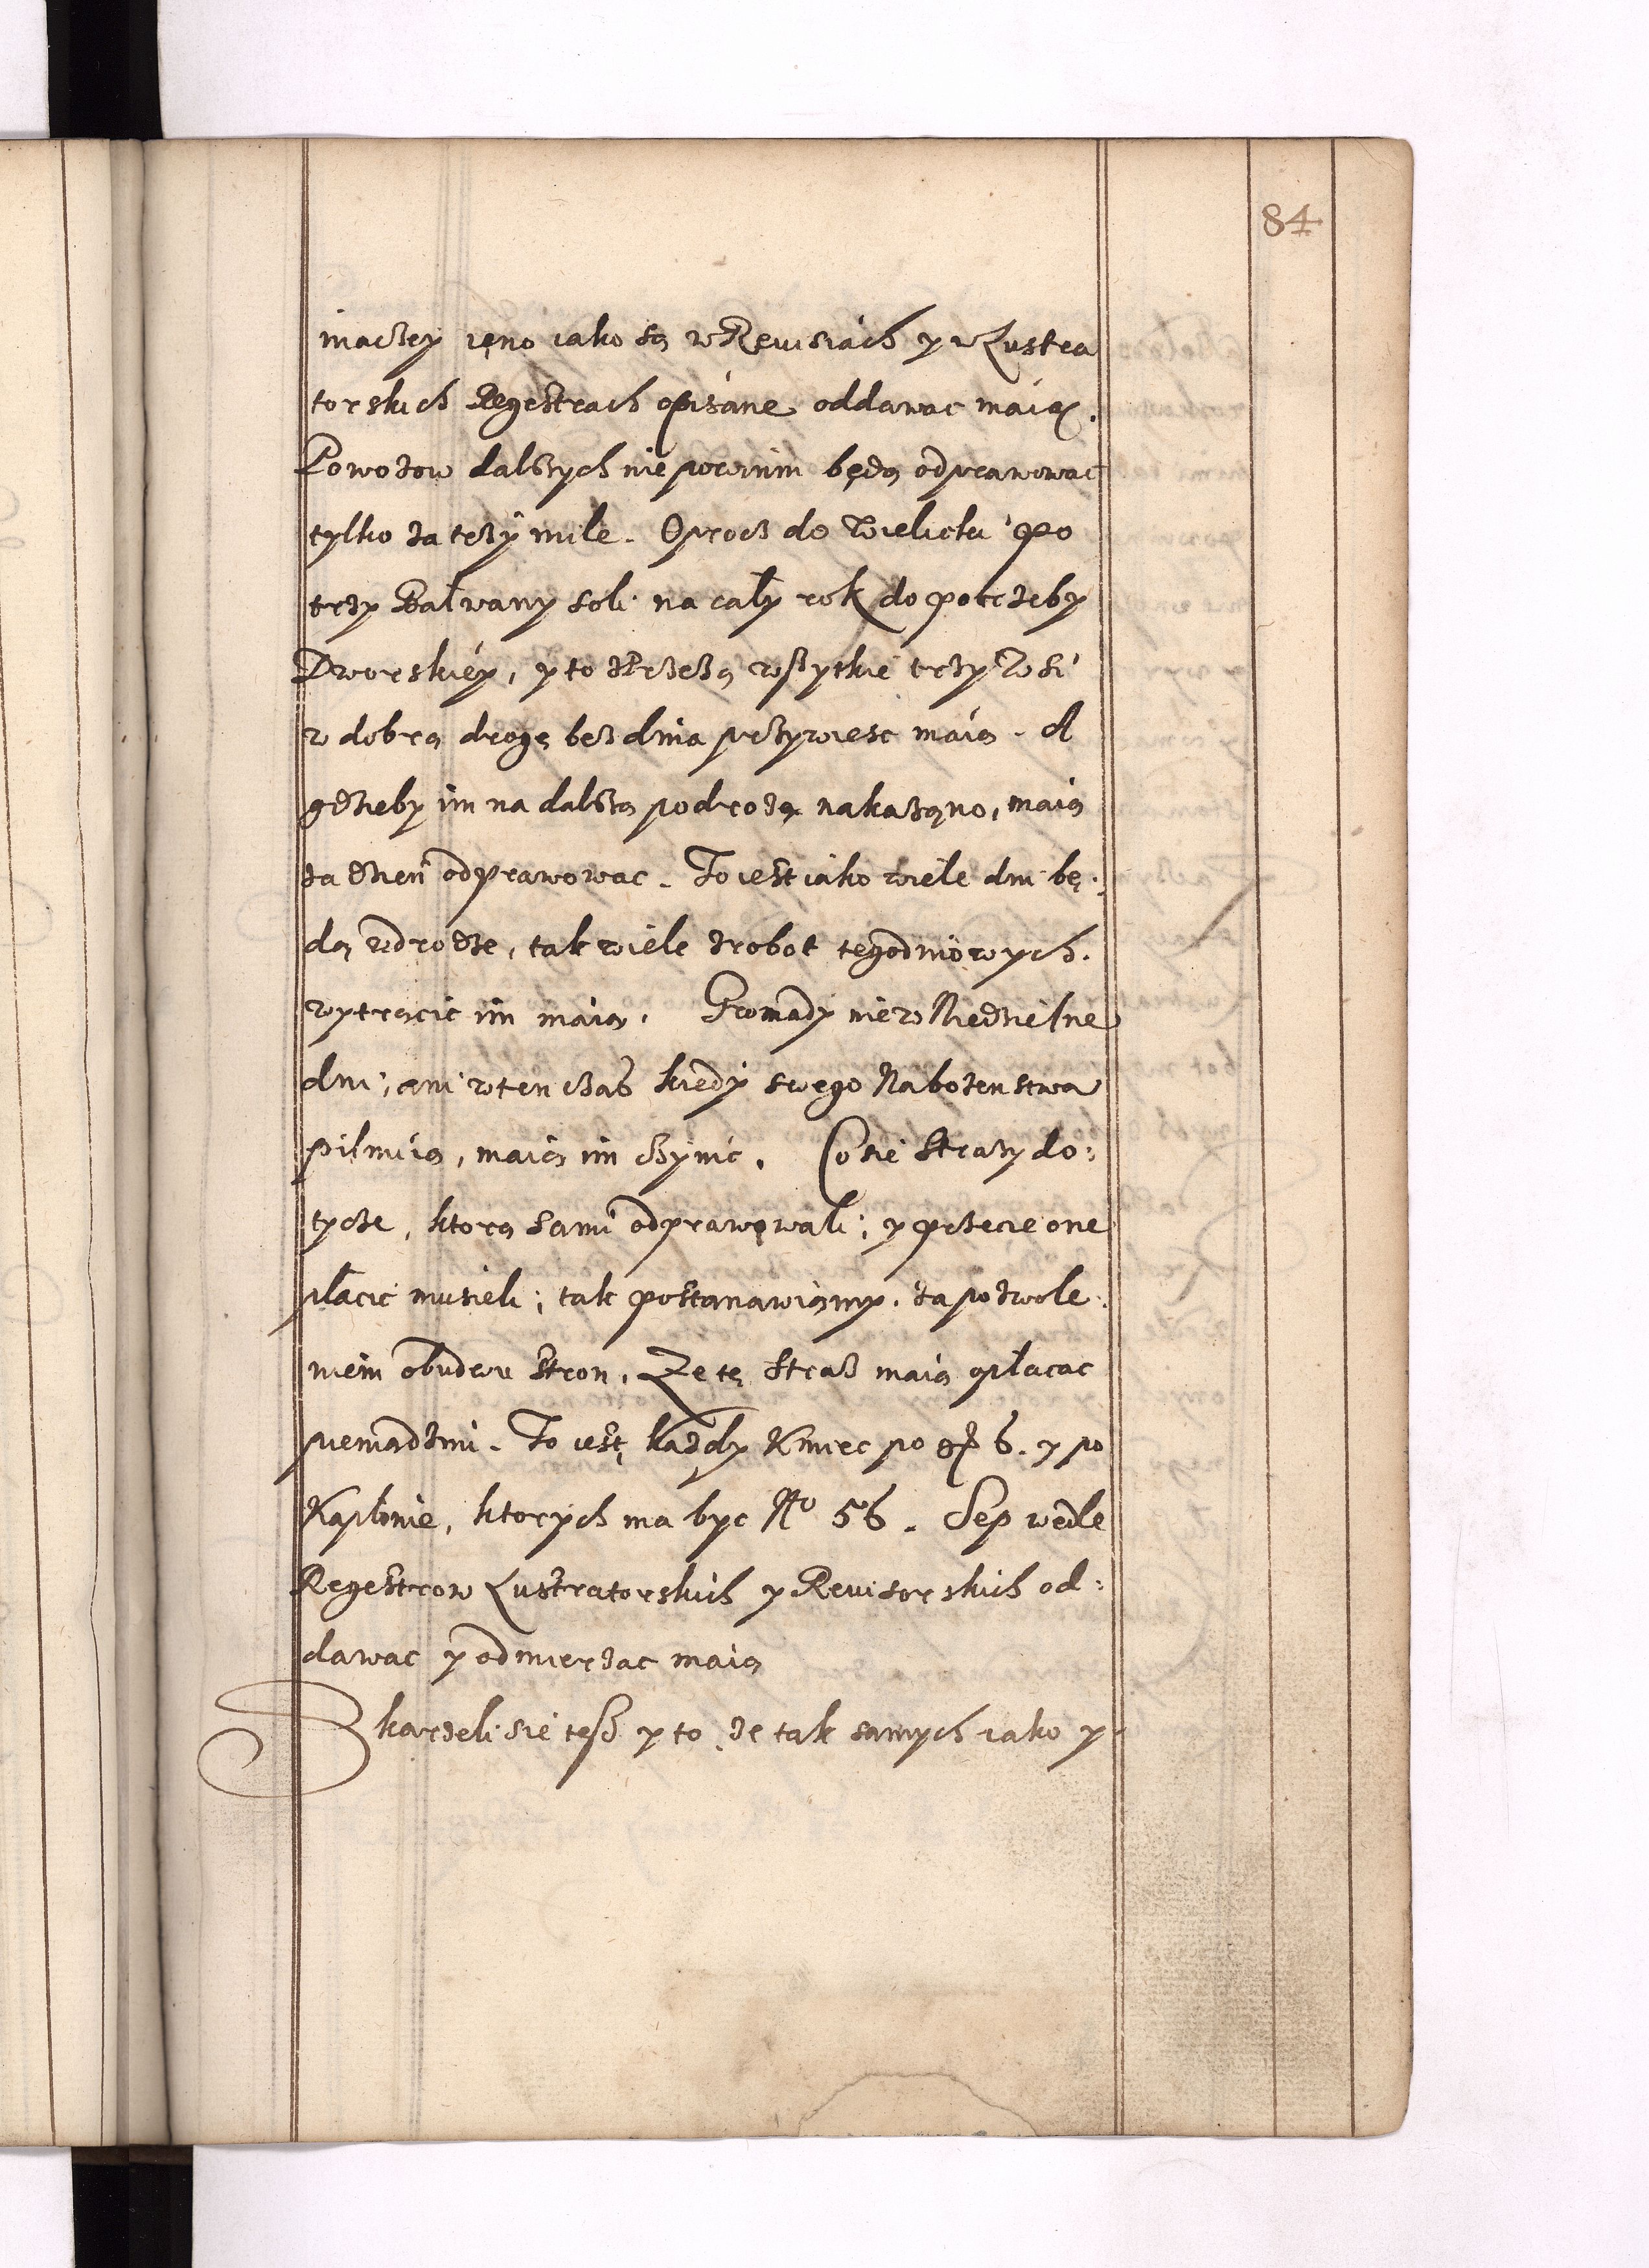 84
inaczey ięno iako są w Rewisiach y w Lustra
torskich Regestrach opisane oddawac maią.
Powozow dalszych nie powinni będą odprawowac
tylko za trzy mile. Oprocz do Wieliczki po
trzy Bałwany soli na cały rok do potrzeby
Dworskiéy, y to wszytkie trzy Wsi
w dobrą drogę bez dnia przywiesc maią. A
gdzieby im na dalszą podrożą nakazano, maią
za dzien odprawowac. To iest iako wiele dni bę:
dą w drodze, tak wiele z robot tegodniowych.
wytrącic im maią. Gromady nie w Niedzielne
dni, ani w ten czas kiedy swego Nabożenstwa
pilnuią, maią im czynic. Co sie Strazy do:
tycze, ktorą sami odprawowali; y przecie one
płacic musieli; tak postanawiamy, za pozwole:
niem obudwu Stron, Ze tę Straż maią opłacac
pieniądzmi. To iest, każdy Kmiec po gr 6. y po
Kapłonie, ktorych ma byc No 56. Sep wedle
Regestrow Lustratorskich y Rewisorskich od:
dawac y odmierzac maią
Skarżeli sie tesz y to, że tak samych iako y